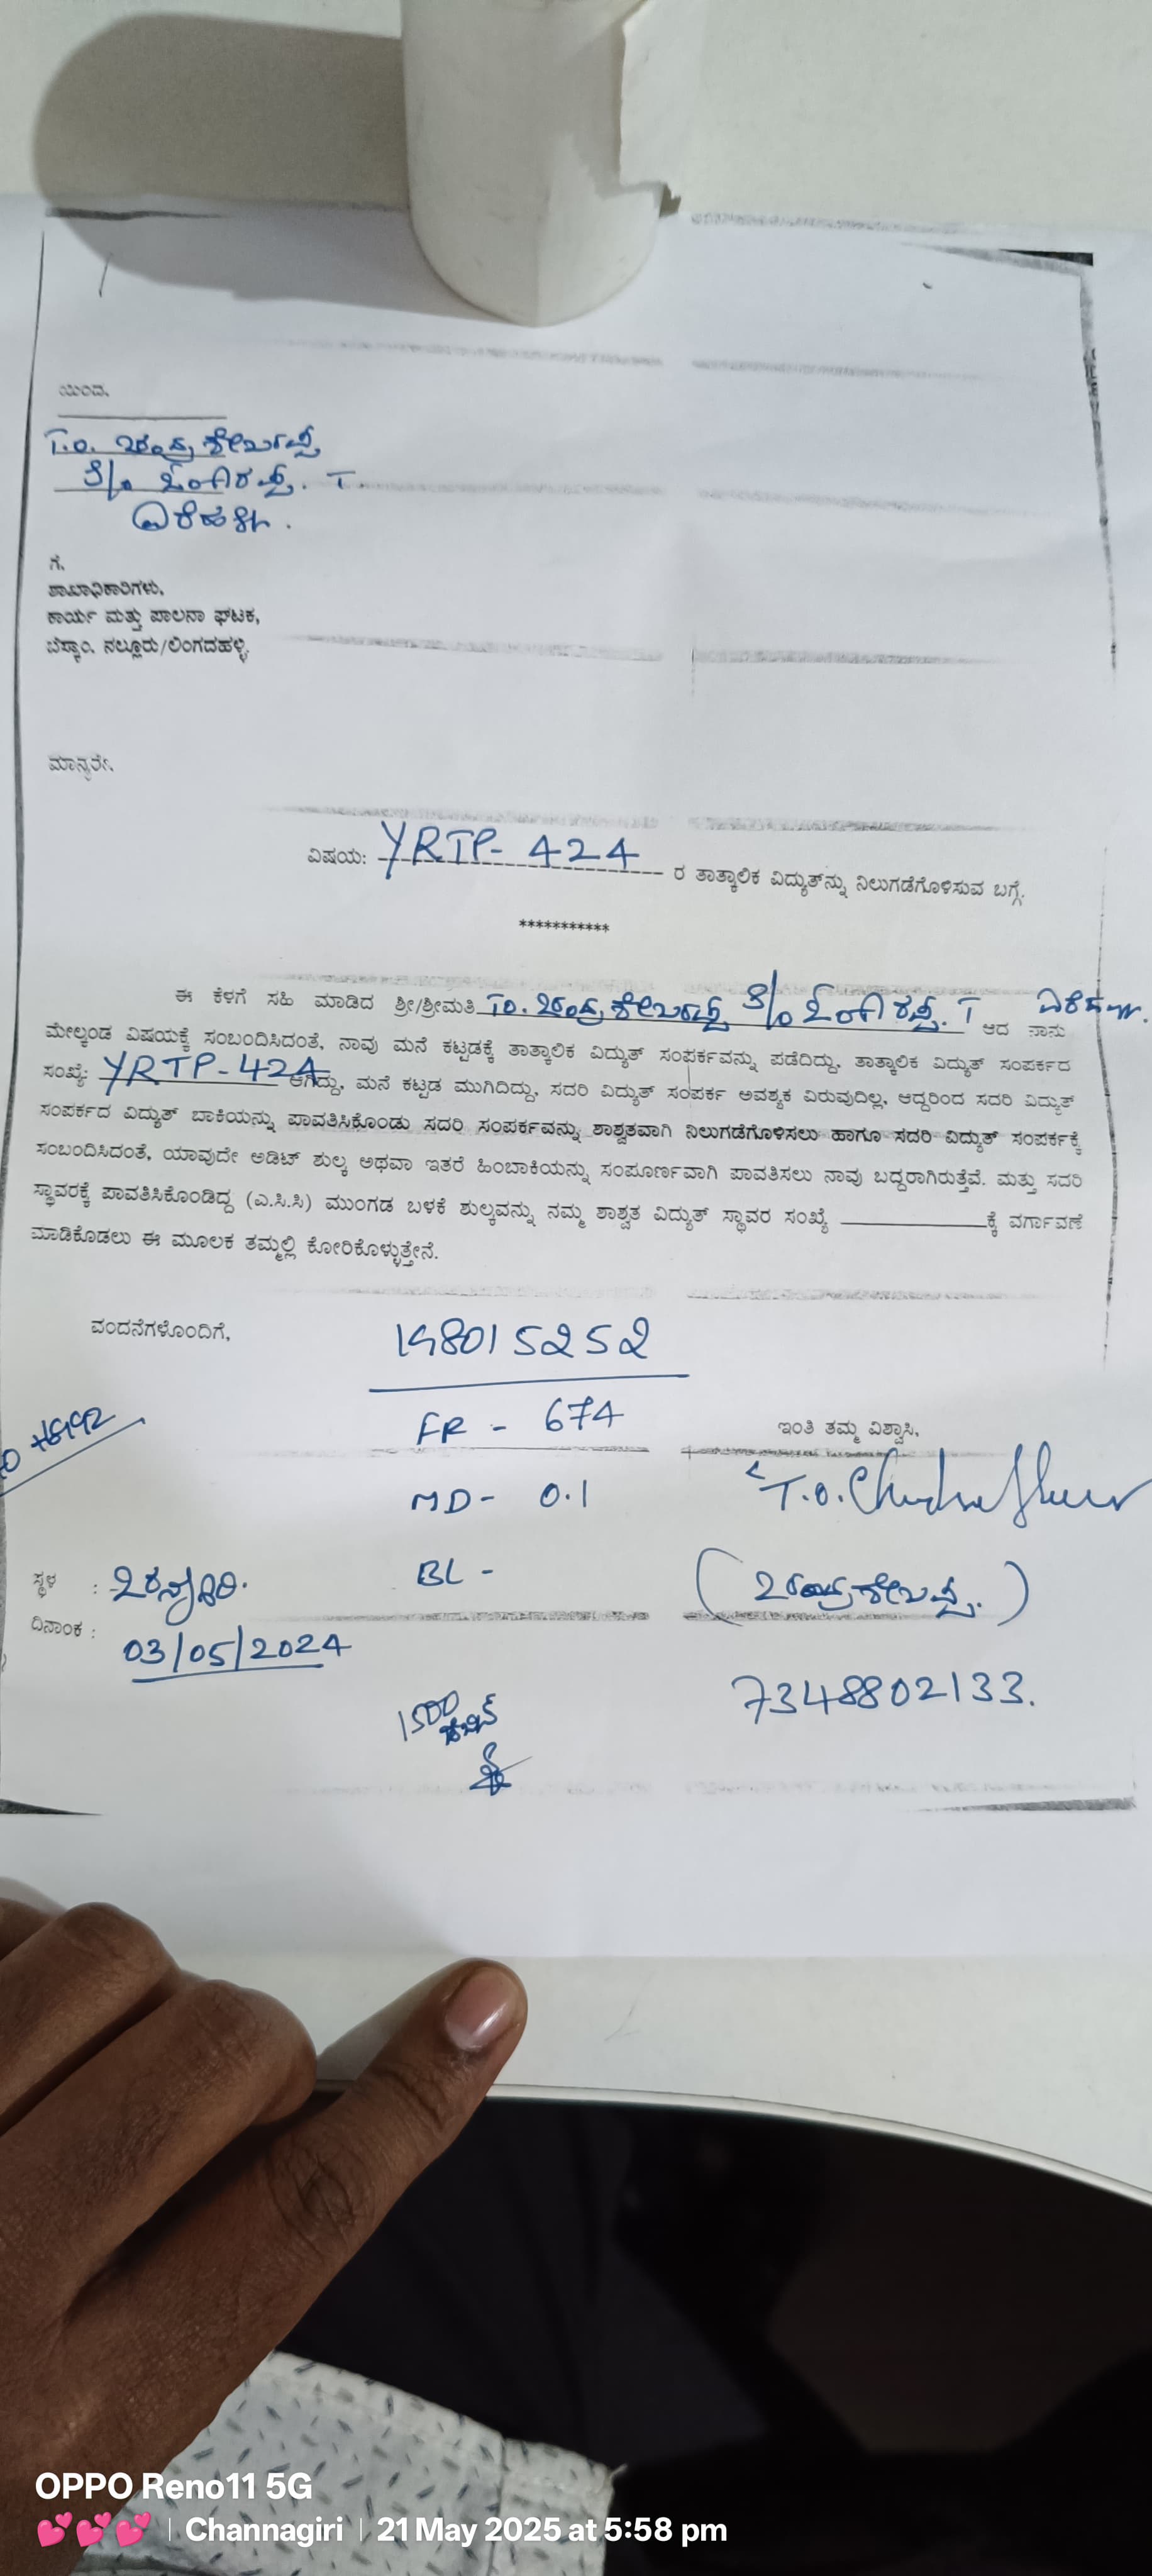 ಯಿಂದ,
T.O. ಚಂದ್ರಶೇಖರಪ್ಪ
S/o ಓಂಕಾರಪ್ಪ. T.
ಗೆ,
ಶಾಖಾಧಿಕಾರಿಗಳು,
ಕಾರ್ಯ ಮತ್ತು ಪಾಲನಾ ಘಟಕ,
ಬೆಸ್ಕಾಂ, ನಲ್ಲೂರು/ಲಿಂಗದಹಳ್ಳಿ.
ಮಾನ್ಯರೇ,
ವಿಷಯ: YRTP- 424 ರ ತಾತ್ಕಾಲಿಕ ವಿದ್ಯುತ್‌ನ್ನು ನಿಲುಗಡೆಗೊಳಿಸುವ ಬಗ್ಗೆ.
***********
ಈ ಕೆಳಗೆ ಸಹಿ ಮಾಡಿದ ಶ್ರೀ/ಶ್ರೀಮತಿ T.O. ಚಂದ್ರಶೇಖರಪ್ಪ S/o ಓಂಕಾರಪ್ಪ. T ಆದ ನಾನು
ಮೇಲ್ಕಂಡ ವಿಷಯಕ್ಕೆ ಸಂಬಂದಿಸಿದಂತೆ, ನಾವು ಮನೆ ಕಟ್ಟಡಕ್ಕೆ ತಾತ್ಕಾಲಿಕ ವಿದ್ಯುತ್ ಸಂಪರ್ಕವನ್ನು ಪಡೆದಿದ್ದು, ತಾತ್ಕಾಲಿಕ ವಿದ್ಯುತ್ ಸಂಪರ್ಕದ
ಸಂಖ್ಯೆ: YRTP-424 ಆಗಿದ್ದು, ಮನೆ ಕಟ್ಟಡ ಮುಗಿದಿದ್ದು, ಸದರಿ ವಿದ್ಯುತ್ ಸಂಪರ್ಕ ಅವಶ್ಯಕ ವಿರುವುದಿಲ್ಲ, ಆದ್ದರಿಂದ ಸದರಿ ವಿದ್ಯುತ್
ಸಂಪರ್ಕದ ವಿದ್ಯುತ್ ಬಾಕಿಯನ್ನು ಪಾವತಿಸಿಕೊಂಡು ಸದರಿ ಸಂಪರ್ಕವನ್ನು ಶಾಶ್ವತವಾಗಿ ನಿಲುಗಡೆಗೊಳಿಸಲು ಹಾಗೂ ಸದರಿ ವಿದ್ಯುತ್ ಸಂಪರ್ಕಕ್ಕೆ
ಸಂಬಂದಿಸಿದಂತೆ, ಯಾವುದೇ ಅಡಿಟ್ ಶುಲ್ಕ ಅಥವಾ ಇತರೆ ಹಿಂಬಾಕಿಯನ್ನು ಸಂಪೂರ್ಣವಾಗಿ ಪಾವತಿಸಲು ನಾವು ಬದ್ದರಾಗಿರುತ್ತೆವೆ. ಮತ್ತು ಸದರಿ
ಸ್ಥಾವರಕ್ಕೆ ಪಾವತಿಸಿಕೊಂಡಿದ್ದ (ಎ.ಸಿ.ಸಿ) ಮುಂಗಡ ಬಳಕೆ ಶುಲ್ಕವನ್ನು ನಮ್ಮ ಶಾಶ್ವತ ವಿದ್ಯುತ್ ಸ್ಥಾವರ ಸಂಖ್ಯೆ ____________ಕ್ಕೆ ವರ್ಗಾವಣೆ
ಮಾಡಿಕೊಡಲು ಈ ಮೂಲಕ ತಮ್ಮಲ್ಲಿ ಕೋರಿಕೊಳ್ಳುತ್ತೇನೆ.
ವಂದನೆಗಳೊಂದಿಗೆ,
FR - 674
ಇಂತಿ ತಮ್ಮ ವಿಶ್ವಾಸಿ,
MD - 0.1
BL -
(ಚಂದ್ರಶೇಖರಪ್ಪ.)
ಸ್ಥಳ : ಚನ್ನಗಿರಿ.
ದಿನಾಂಕ : 03/05/2024
1500
7348802133.
OPPO Reno11 5G
💕💕💕 | Channagiri | 21 May 2025 at 5:58 pm